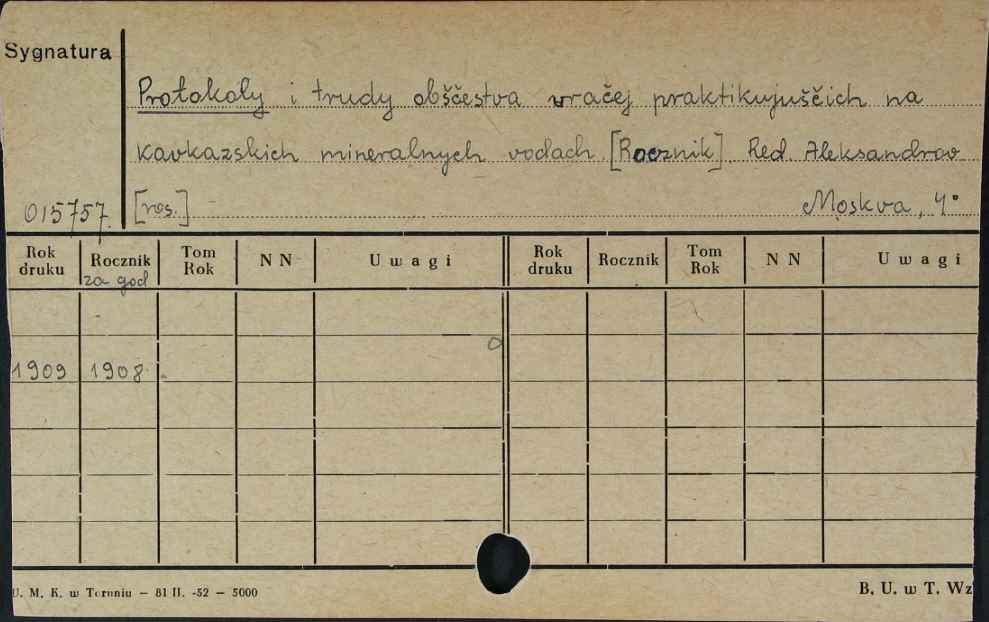 Sygnatura
Protokoly i trudy obščestva vračej praktikujuščich na
kavkazskich mineralnych vodach [Rocznik]. Red. Aleksandrov
015757. [ros.] Moskva, 4°
Rok druku Rocznik Tom Rok NN Uwagi Rok druku Rocznik Tom Rok NN Uwagi
za god
1909 1908
U. M. K. w Toruniu — 81 II. -52 — 5000 B. U. w T. Wz